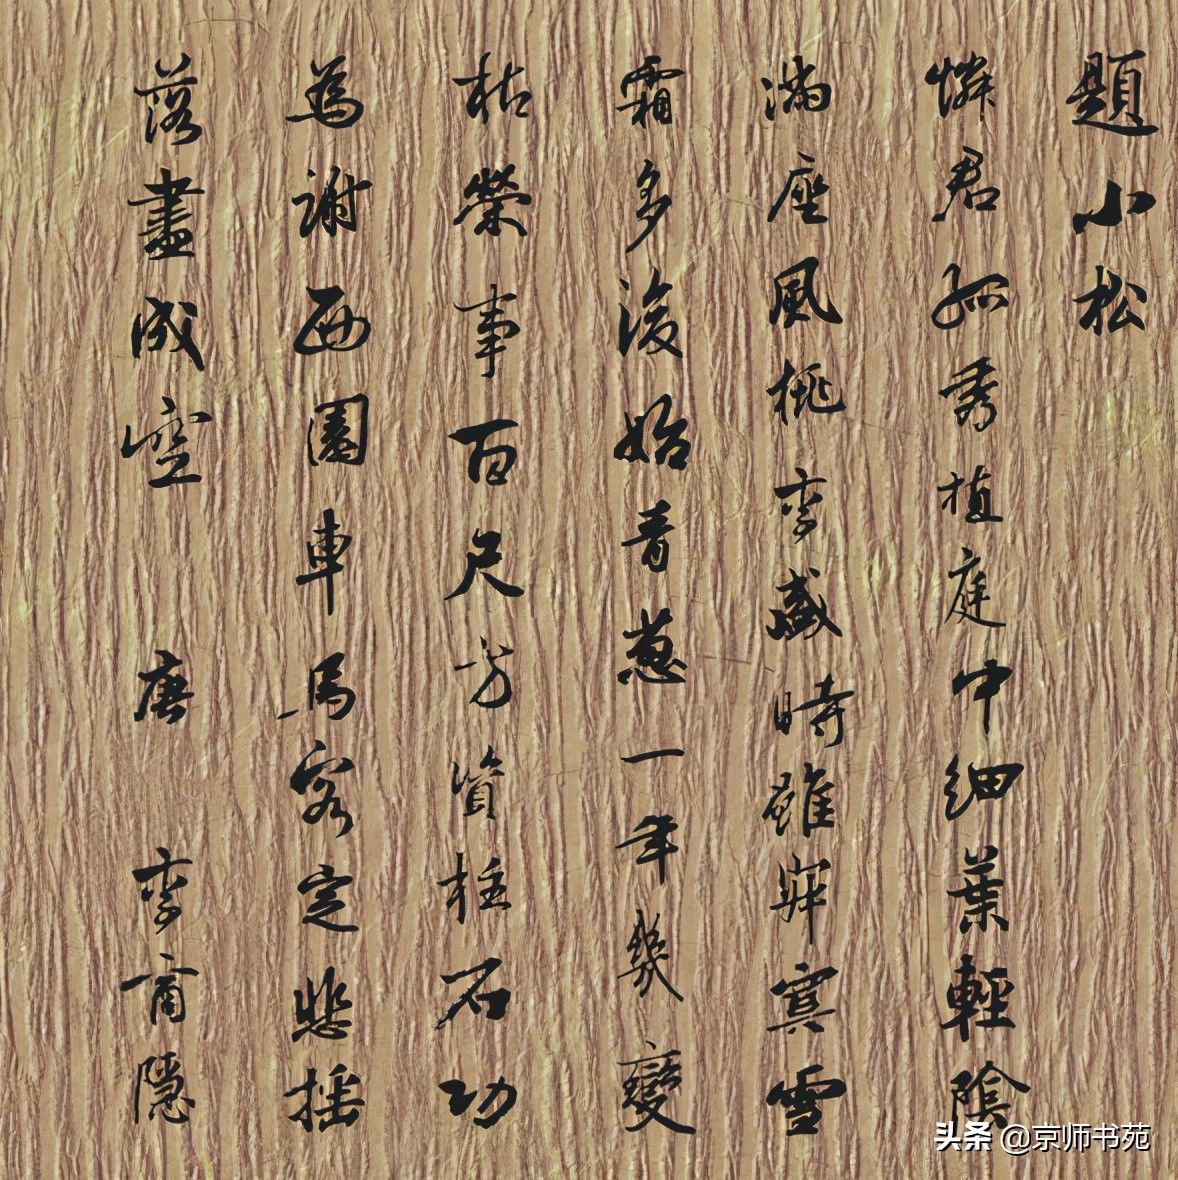 題小松
憐君孤秀植庭中細葉輕陰
滿座風桃李盛時雖寂寞雪
霜多後始青蔥一年幾變
枯榮事百尺方資柱石功
為謝西園車馬客定悲搖
落盡成空 唐 李商隱
头条 @京师书苑